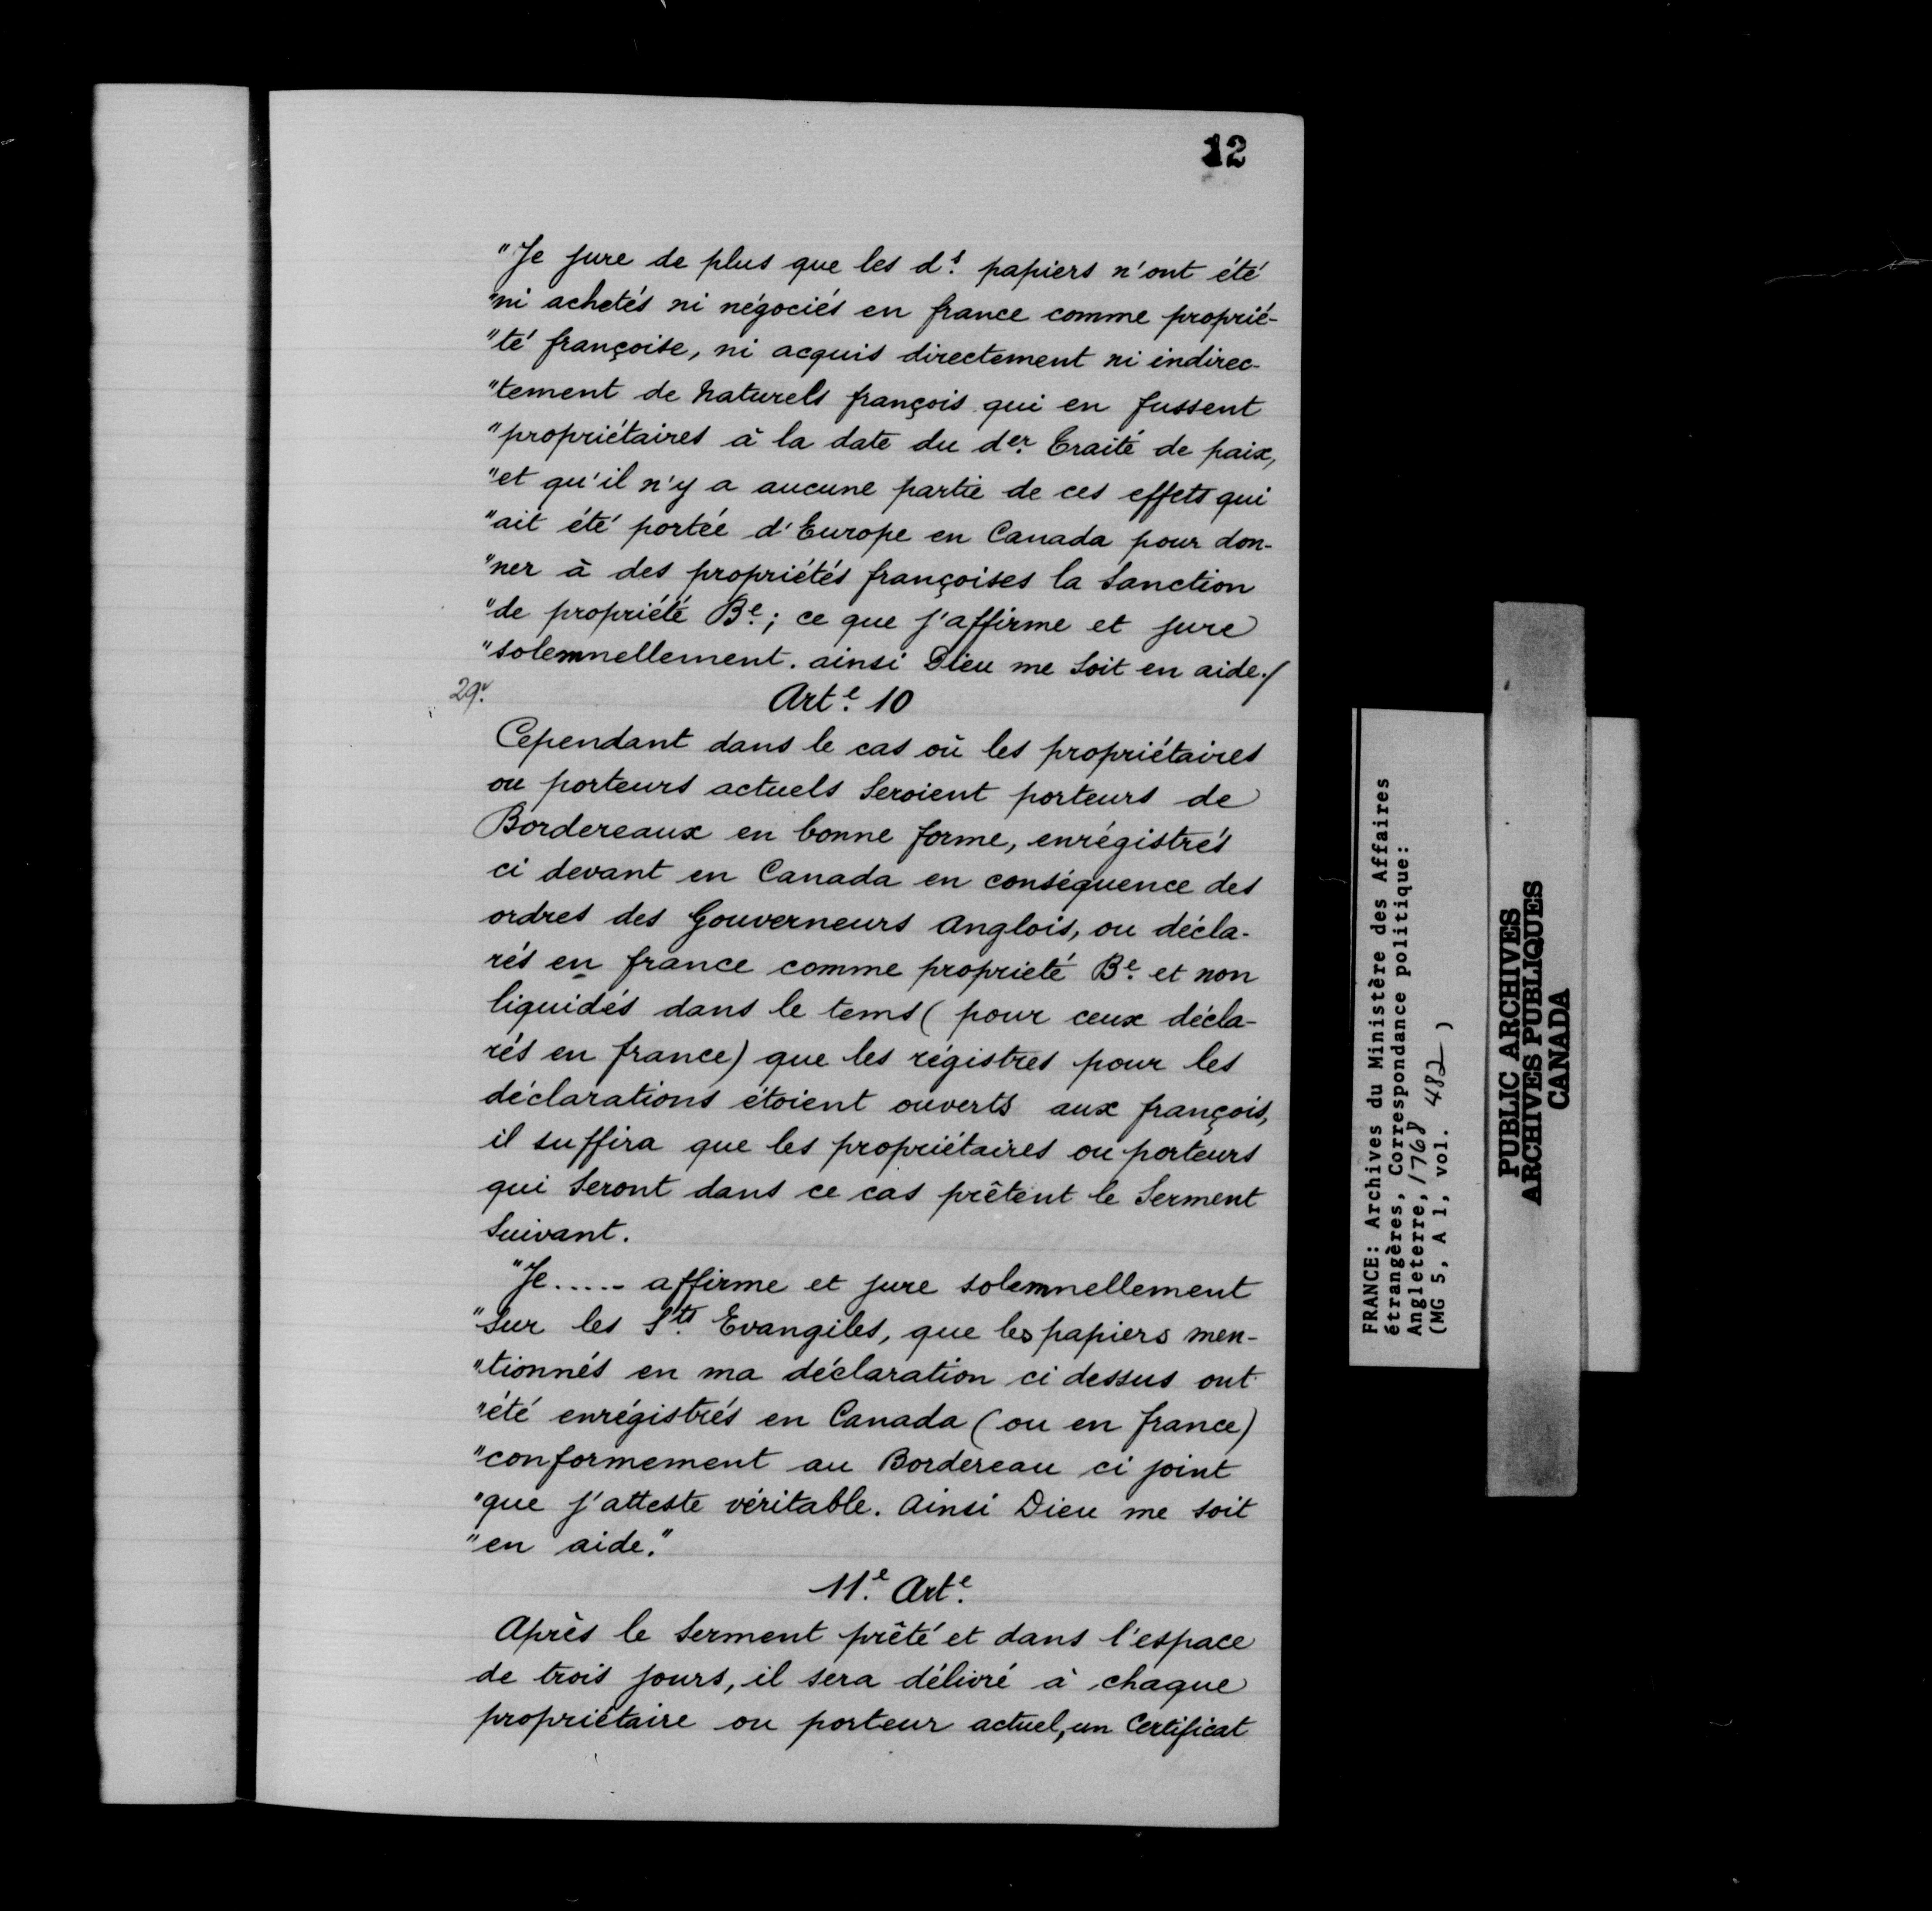 12
"Je jure de plus que les d.s papiers n'ont été
"ni achetés ni négociés en france comme proprié-
"té françoise, ni acquis directement ni indirec-
"tement de Naturels françois qui en fussent
"propriétaires à la date du d.er Traité de paix,
"et qu'il n'y a aucune partie de ces effets qui
"ait été portée d'Europe en Canada pour don-
"ner à des propriétés françoises la Sanction
"de propriété B.e; ce que j'affirme et jure
"solemnellement. ainsi Dieu me soit en aide./
29.v
Art.e 10
Cependant dans le cas où les propriétaires
ou porteurs actuels Seroient porteurs de
Bordereaux en bonne forme, enrégistrés
ci devant en Canada en conséquence des
ordres des Gouverneurs Anglois, ou décla-
rés en france comme proprieté B.e et non
liquidés dans le tems (pour ceux décla-
rés en france) que les régistres pour les
déclarations étoient ouverts aux françois,
il suffira que les propriétaires ou porteurs
qui Seront dans ce cas prêtent le Serment
Suivant.
"Je..... affirme et jure solemnellement
"Sur les S.ts Evangiles, que les papiers men-
"tionnés en ma déclaration ci dessus ont
"été enrégistrés en Canada (ou en france)
"conformement au Bordereau ci joint
"que j'atteste véritable. Ainsi Dieu me soit
"en aide."
11.e Art.e
Après le Serment prêté et dans l'espace
de trois jours, il sera délivré à chaque
propriétaire ou porteur actuel, un Certificat
FRANCE: Archives du Ministère des Affaires
étrangères, Correspondance politique:
Angleterre, 1768
(MG 5, A 1, vol. 482)
PUBLIC ARCHIVES
ARCHIVES PUBLIQUES
CANADA